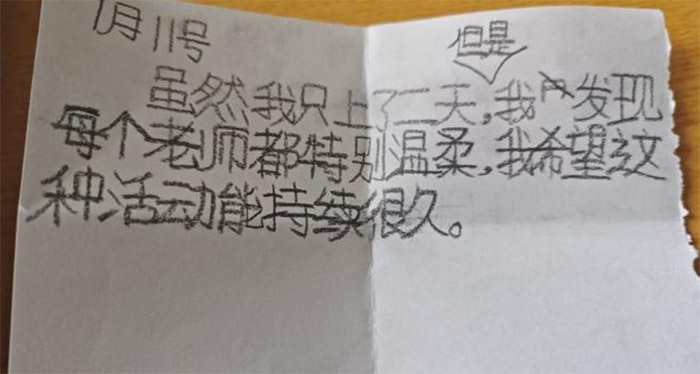 1月11号
但是
虽然我只上了二天,我发现
每个老师都特别温柔,我希望这
种活动能持续很久。